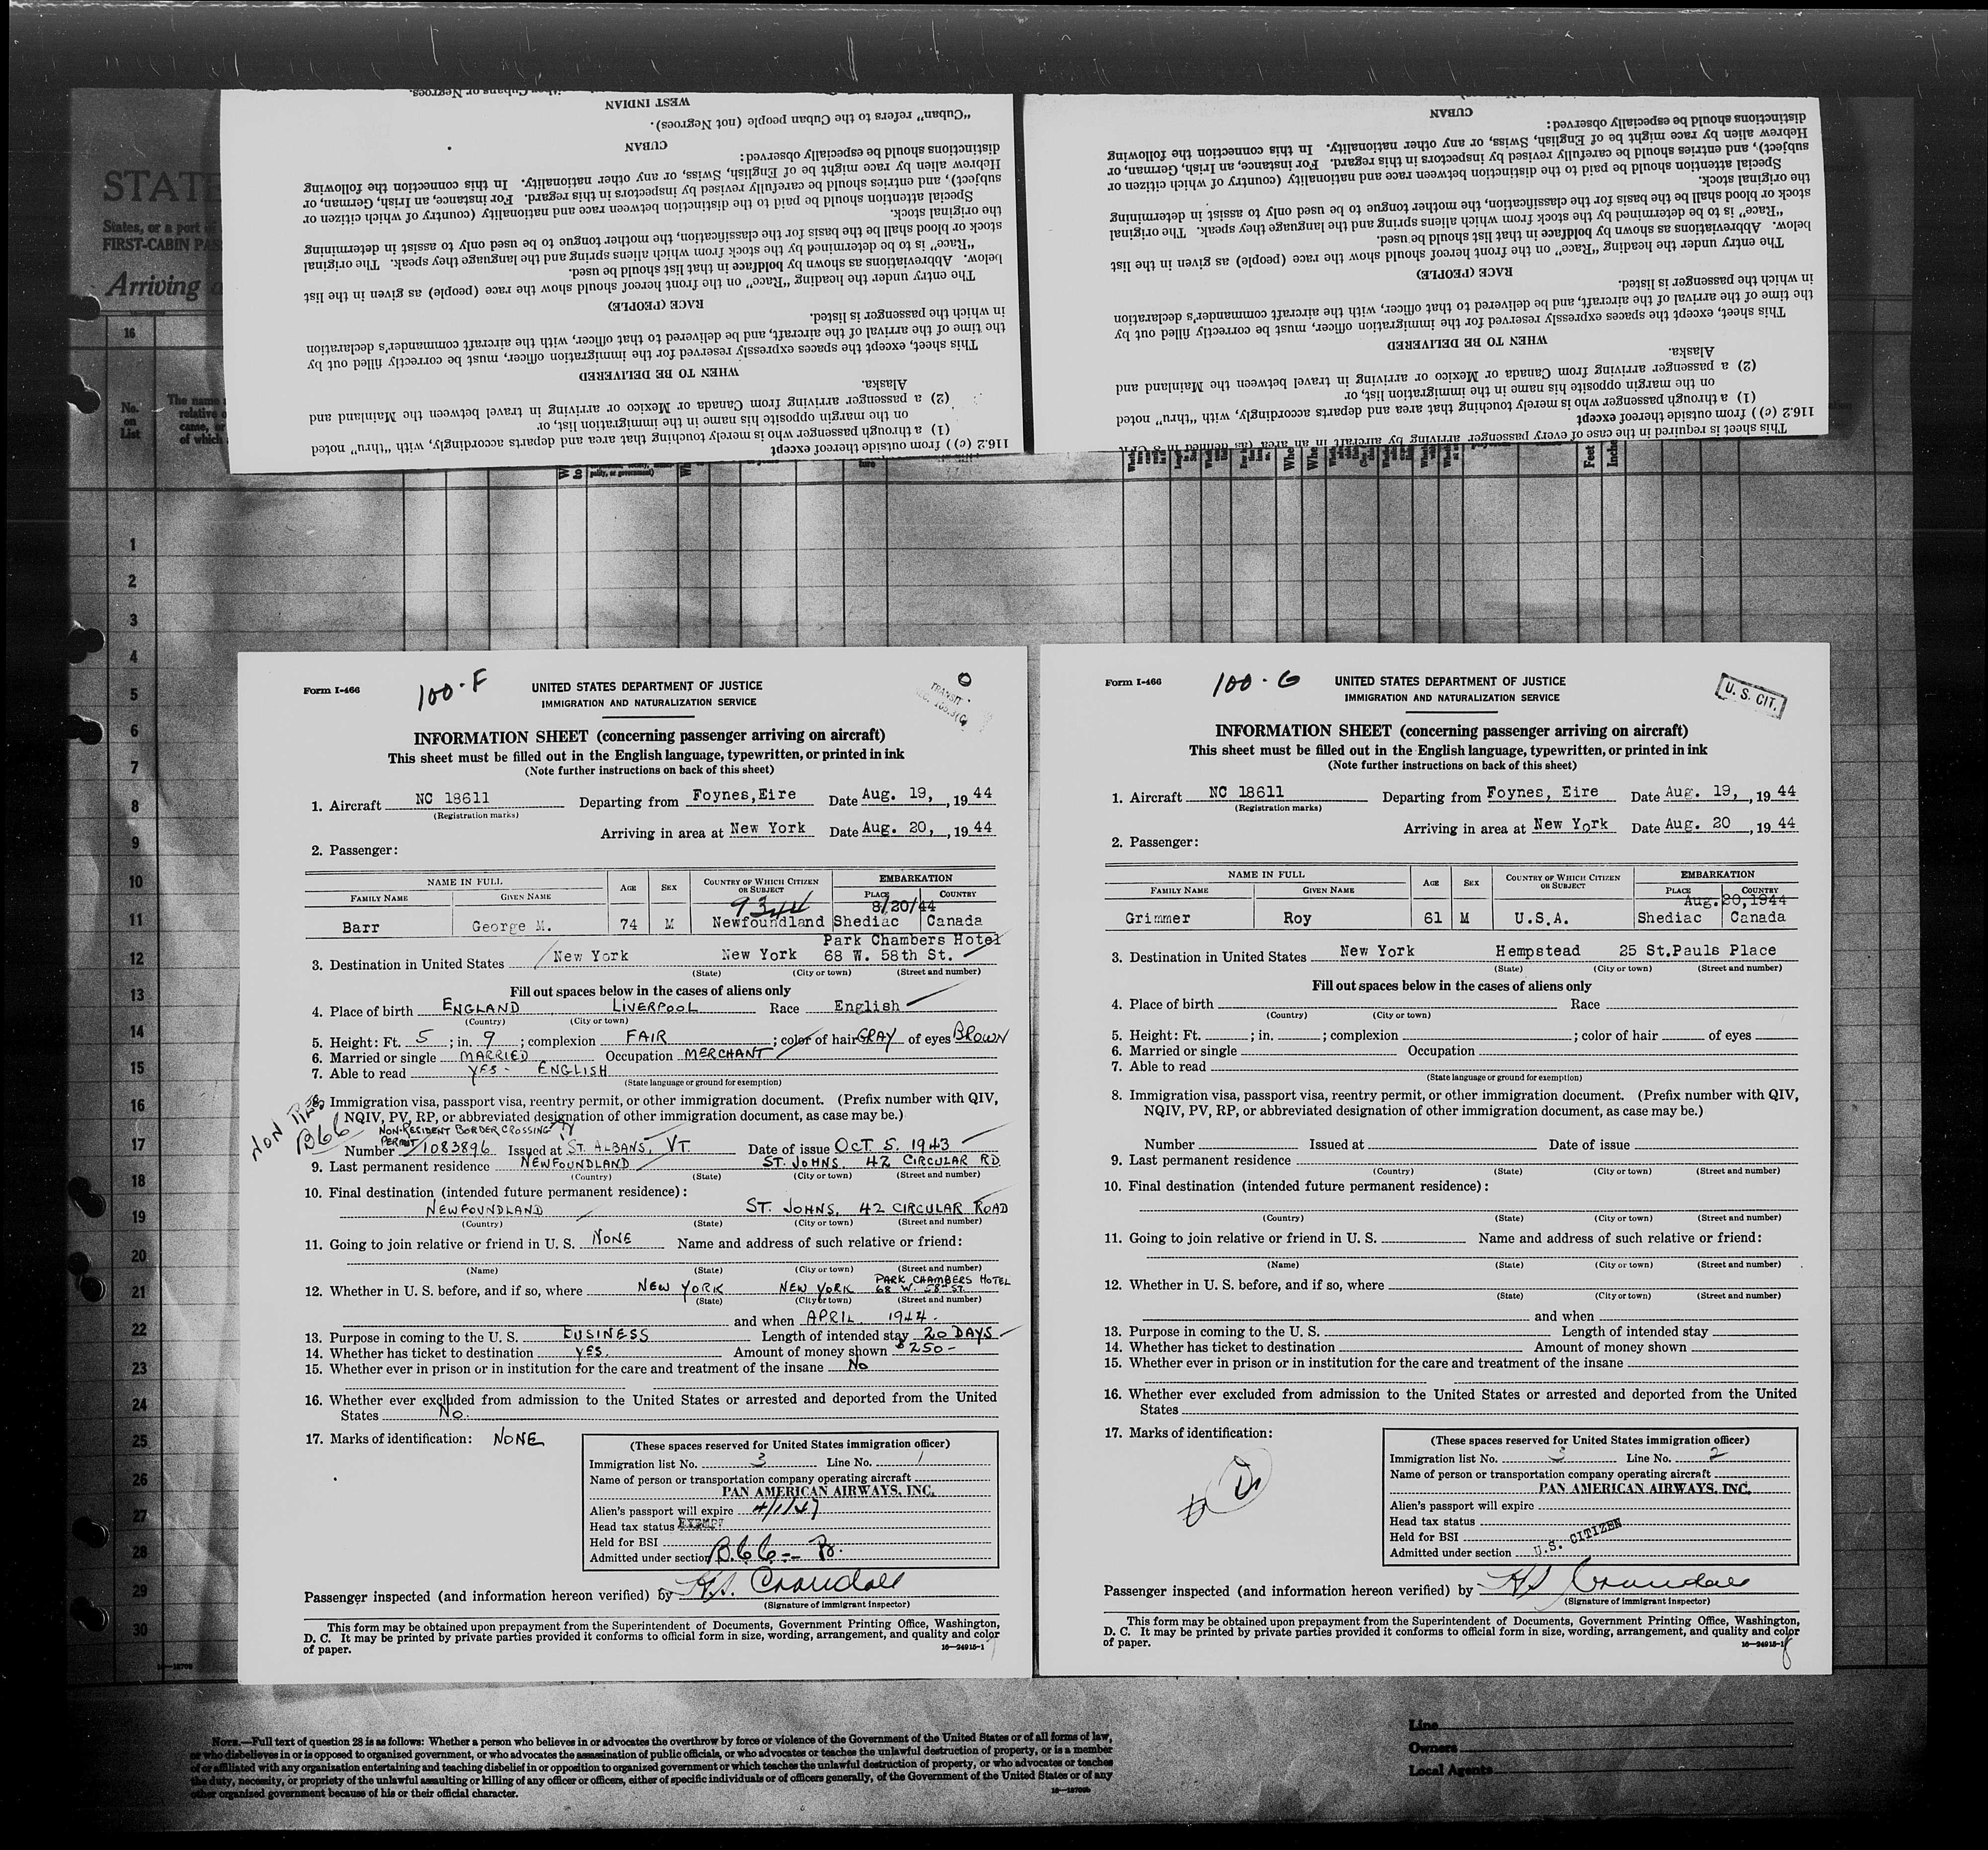 "Cuban" refers to the Cuban people (not Negroes).
WEST INDIAN
CUBAN
distinctions should be especially observed:
Hebrew alien by race might be of English, Swiss, or any other nationality. In this connection the following
subject), and entries should be carefully revised by inspectors in this regard. For instance, an Irish, German, or
Special attention should be paid to the distinction between race and nationality (country of which citizen or
the original stock.
stock or blood shall be the basis for the classification, the mother tongue to be used only to assist in determining
"Race" is to be determined by the stock from which aliens spring and the language they speak. The original
below. Abbreviations as shown by boldface in that list should be used.
The entry under the heading "Race" on the front hereof should show the race (people) as given in the list
RACE (PEOPLE)
in which the passenger is listed.
the time of the arrival of the aircraft, and be delivered to that officer, with the aircraft commander's declaration
This sheet, except the spaces expressly reserved for the immigration officer, must be correctly filled out by
WHEN TO BE DELIVERED
Alaska.
(2) a passenger arriving from Canada or Mexico or arriving in travel between the Mainland and
on the margin opposite his name in the immigration list, or
(1) a through passenger who is merely touching that area and departs accordingly, with "thru" noted
116.2 (c) ) from outside thereof except
CUBAN
distinctions should be especially observed:
Hebrew alien by race might be of English, Swiss, or any other nationality. In this connection the following
subject), and entries should be carefully revised by inspectors in this regard. For instance, an Irish, German, or
Special attention should be paid to the distinction between race and nationality (country of which citizen or
the original stock.
stock or blood shall be the basis for the classification, the mother tongue to be used only to assist in determining
"Race" is to be determined by the stock from which aliens spring and the language they speak. The original
below. Abbreviations as shown by boldface in that list should be used.
The entry under the heading "Race" on the front hereof should show the race (people) as given in the list
RACE (PEOPLE)
in which the passenger is listed.
the time of the arrival of the aircraft, and be delivered to that officer, with the aircraft commander's declaration
This sheet, except the spaces expressly reserved for the immigration officer, must be correctly filled out by
WHEN TO BE DELIVERED
Alaska.
(2) a passenger arriving from Canada or Mexico or arriving in travel between the Mainland and
on the margin opposite his name in the immigration list, or
(1) a through passenger who is merely touching that area and departs accordingly, with "thru" noted
116.2 (c) ) from outside thereof except
This sheet is required in the case of every passenger arriving by aircraft in an area (as defined in 8 CFR
STAT
States, or a port
FIRST-CABIN PAS
Arriving
16
No. on List
The name
relative
came, or
of which
Feet
1
2
3
4
5
6
7
8
9
10
11
12
13
14
15
16
17
18
19
20
21
22
23
24
25
26
27
28
29
30
Form I-466
100-F
UNITED STATES DEPARTMENT OF JUSTICE
IMMIGRATION AND NATURALIZATION SERVICE
TRANSIT
INFORMATION SHEET (concerning passenger arriving on aircraft)
This sheet must be filled out in the English language, typewritten, or printed in ink
(Note further instructions on back of this sheet)
1. Aircraft NC 18611 Departing from Foynes, Eire Date Aug. 19, , 19 44
(Registration marks)
Arriving in area at New York Date Aug. 20, , 19 44
2. Passenger:
NAME IN FULL AGE SEX COUNTRY OF WHICH CITIZEN OR SUBJECT EMBARKATION
FAMILY NAME GIVEN NAME PLACE COUNTRY
9344 8/20/44
Barr George M. 74 M Newfoundland Shediac Canada
Park Chambers Hotel
3. Destination in United States New York New York 68 W. 58th St.
(State) (City or town) (Street and number)
Fill out spaces below in the cases of aliens only
4. Place of birth ENGLAND LIVERPOOL Race English
(Country) (City or town)
5. Height: Ft. 5 ; in. 9 ; complexion FAIR ; color of hair GRAY of eyes BROWN
6. Married or single MARRIED Occupation MERCHANT
7. Able to read YES - ENGLISH
(State language or ground for exemption)
NON RES
B66
8. Immigration visa, passport visa, reentry permit, or other immigration document. (Prefix number with QIV,
NQIV, PV, RP, or abbreviated designation of other immigration document, as case may be.)
NON-RESIDENT BORDER CROSSING
PERMIT
Number 1083896 Issued at ST. ALBANS, VT. Date of issue OCT 5. 1943
9. Last permanent residence NEWFOUNDLAND ST. JOHNS. 42 CIRCULAR RD.
(Country) (State) (City or town) (Street and number)
10. Final destination (intended future permanent residence):
NEWFOUNDLAND ST. JOHNS, 42 CIRCULAR ROAD
(Country) (State) (City or town) (Street and number)
11. Going to join relative or friend in U. S. NONE Name and address of such relative or friend:
(Name) (State) (City or town) (Street and number)
PARK CHAMBERS HOTEL
12. Whether in U. S. before, and if so, where NEW YORK NEW YORK 68 W. 58th ST.
(State) (City or town) (Street and number)
and when APRIL 1944.
13. Purpose in coming to the U. S. BUSINESS Length of intended stay 20 DAYS
14. Whether has ticket to destination YES. Amount of money shown $250-
15. Whether ever in prison or in institution for the care and treatment of the insane No
16. Whether ever excluded from admission to the United States or arrested and deported from the United
States No.
17. Marks of identification: NONE
(These spaces reserved for United States immigration officer)
Immigration list No. 3 Line No. 1
Name of person or transportation company operating aircraft
PAN AMERICAN AIRWAYS, INC.
Alien's passport will expire 4/1/47
Head tax status EXEMPT
Held for BSI
Admitted under section B66-
Passenger inspected (and information hereon verified) by H.S. Crandall
(Signature of immigrant inspector)
This form may be obtained upon prepayment from the Superintendent of Documents, Government Printing Office, Washington,
D. C. It may be printed by private parties provided it conforms to official form in size, wording, arrangement, and quality and color
of paper. 16—24915-1
Form I-466
100-G
UNITED STATES DEPARTMENT OF JUSTICE
IMMIGRATION AND NATURALIZATION SERVICE
U. S. CIT.
INFORMATION SHEET (concerning passenger arriving on aircraft)
This sheet must be filled out in the English language, typewritten, or printed in ink
(Note further instructions on back of this sheet)
1. Aircraft NC 18611 Departing from Foynes, Eire Date Aug. 19, , 19 44
(Registration marks)
Arriving in area at New York Date Aug. 20 , 19 44
2. Passenger:
NAME IN FULL AGE SEX COUNTRY OF WHICH CITIZEN OR SUBJECT EMBARKATION
FAMILY NAME GIVEN NAME PLACE COUNTRY
Aug. 20, 1944
Grimmer Roy 61 M U.S.A. Shediac Canada
3. Destination in United States New York Hempstead 25 St.Pauls Place
(State) (City or town) (Street and number)
Fill out spaces below in the cases of aliens only
4. Place of birth Race
(Country) (City or town)
5. Height: Ft. ; in. ; complexion ; color of hair of eyes
6. Married or single Occupation
7. Able to read
(State language or ground for exemption)
8. Immigration visa, passport visa, reentry permit, or other immigration document. (Prefix number with QIV,
NQIV, PV, RP, or abbreviated designation of other immigration document, as case may be.)
Number Issued at Date of issue
9. Last permanent residence
(Country) (State) (City or town) (Street and number)
10. Final destination (intended future permanent residence):
(Country) (State) (City or town) (Street and number)
11. Going to join relative or friend in U. S. Name and address of such relative or friend:
(Name) (State) (City or town) (Street and number)
12. Whether in U. S. before, and if so, where
(State) (City or town) (Street and number)
and when
13. Purpose in coming to the U. S. Length of intended stay
14. Whether has ticket to destination Amount of money shown
15. Whether ever in prison or in institution for the care and treatment of the insane
16. Whether ever excluded from admission to the United States or arrested and deported from the United
States
17. Marks of identification:
(These spaces reserved for United States immigration officer)
Immigration list No. 3 Line No. 2
Name of person or transportation company operating aircraft
PAN AMERICAN AIRWAYS, INC.
Alien's passport will expire
Head tax status
Held for BSI
Admitted under section U.S. CITIZEN
Passenger inspected (and information hereon verified) by HS Crandall
(Signature of immigrant inspector)
This form may be obtained upon prepayment from the Superintendent of Documents, Government Printing Office, Washington,
D. C. It may be printed by private parties provided it conforms to official form in size, wording, arrangement, and quality and color
of paper. 16—24915-1
NOTE.—Full text of question 28 is as follows: Whether a person who believes in or advocates the overthrow by force or violence of the Government of the United States or of all forms of law,
or who disbelieves in or is opposed to organized government, or who advocates the assassination of public officials, or who advocates or teaches the unlawful destruction of property, or is a member
of or affiliated with any organization entertaining and teaching disbelief in or opposition to organized government or which teaches the unlawful destruction of property, or who advocates or teaches
the duty, necessity, or propriety of the unlawful assaulting or killing of any officer or officers, either of specific individuals or of officers generally, of the Government of the United States or of any
other organized government because of his or their official character.
Line
Owners
Local Agents